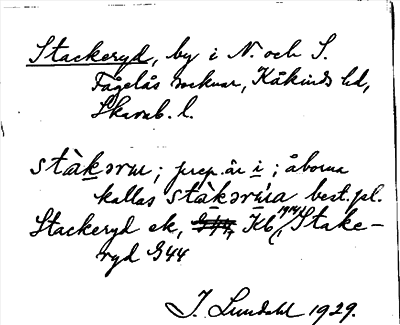 Stackeryd, by i N. och S.
Fågelås socknar, Kåkinds hd,
Skarab. l.
stàkərm; prep. är i; åborna
kallas stàkərma best. pl.
Stackeryd ek, G44, Kb 1914, Stake-
ryd G44
J. Lundahl 1929.